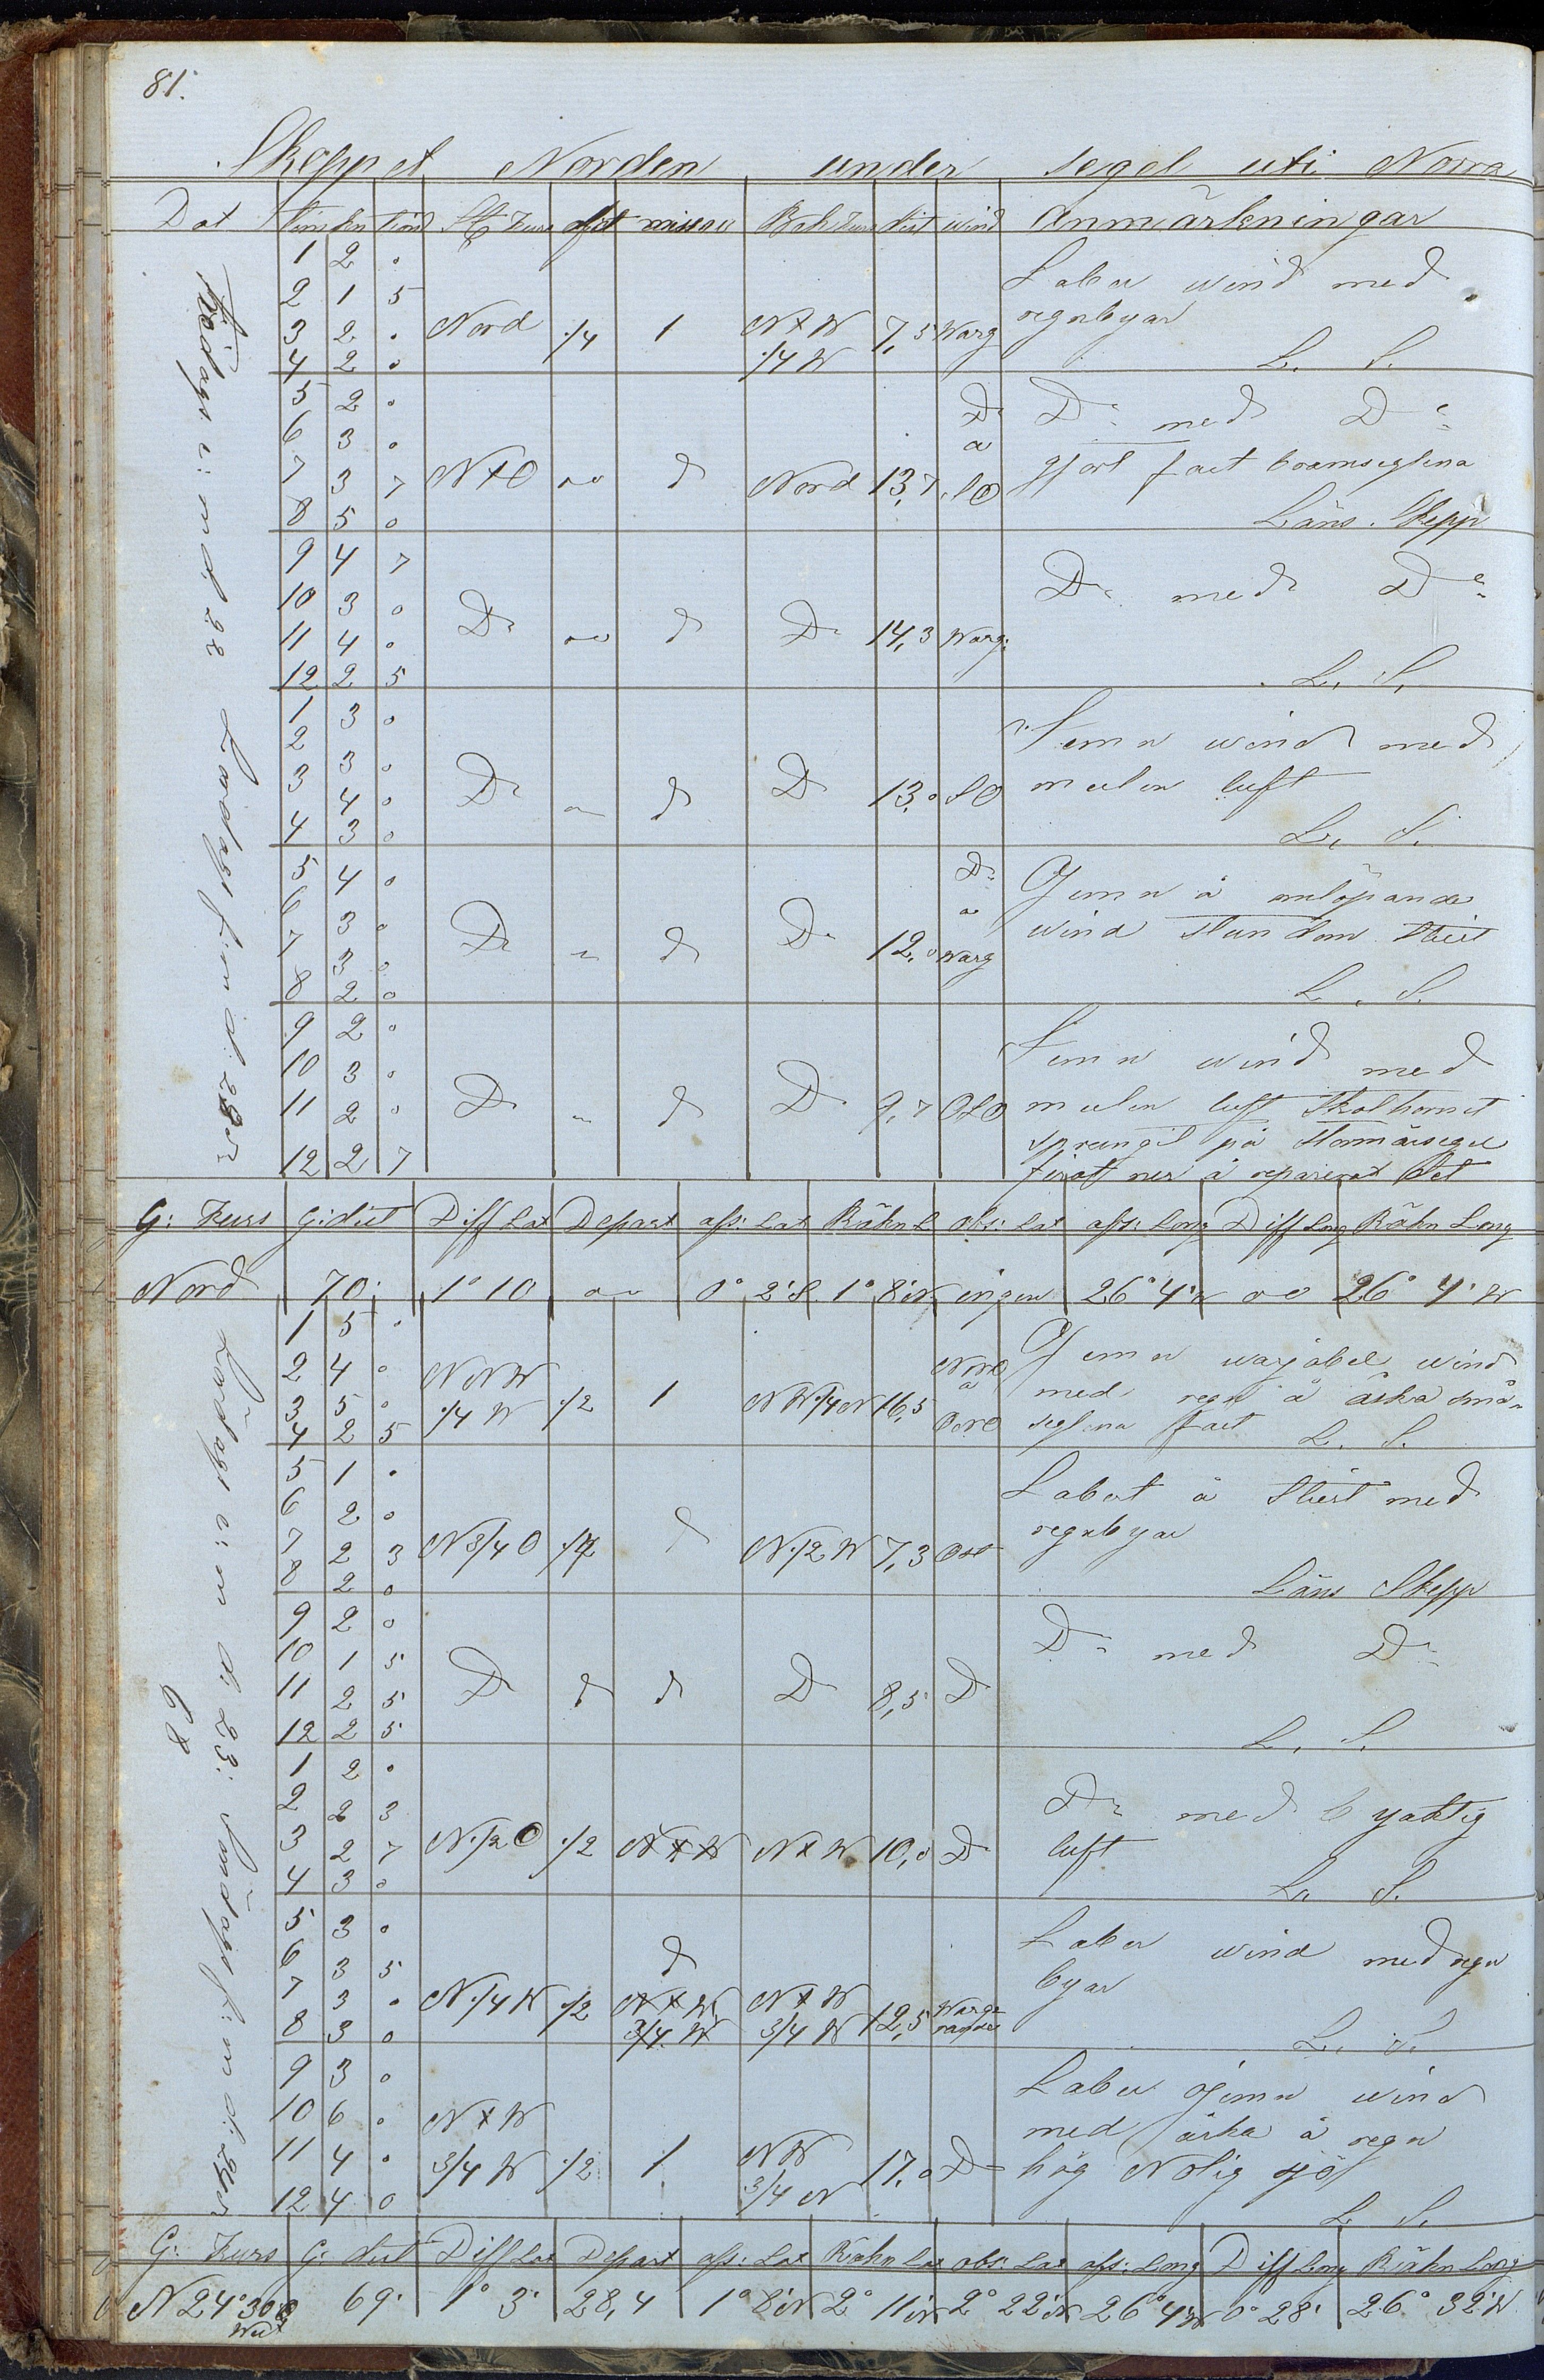 81.
Skeppet Norden under segel uti Norra
Dat tim kn tiond St Kurs afdt missv Beh Kurs dist wind Anmärkningar
Frédags e: md. 22 Lördags f: m d: 23
1 2 0
2 1 5
3 2 0 Nord 1/4 1 NxW 7,5 Warg
4 2 0 1/4 W
Laber wind med
regnbyar
L. S.
5 2 0
6 3 0
7 3 7 NxO " d Nord 13,7 SO
8 5 0
D: med D:
gjort fast bramseglena
Läns Skepp
9 4 7
10 3 0
11 4 0 D: " d D: 14,3 Warg:
12 2 5
D: med D:
L. S.
1 3 0
2 3 0
3 4 0 D: " d D 13,0 SO
4 3 0
Jemn wind med
mulen luft
L. S.
5 4 0
6 3 0
7 3 0 D: " d D: 12,0 Warg
8 2 0
Ojemn å omlöpande
wind stundom Stilt
L. S.
9 2 0
10 3 0
11 2 0 D: " d D: 9,7 OSO
12 2 7
Jemn wind med
mulen luft Skothornet
sprungit på Stormärsegel
firat ner å reparerat det
G: Kurs G: dist Diff Lat Depart afs: Lat Räkn L obs: Lat afs: Long Diff Long Räkn Long
Nord 70: 1° 10 0° 2' S. 1° 8' N ingen 26° 4' W 26° 4' W
Lördags e: m d. 23: Söndags f: m d: 24
68
1 5 0
2 4 0 NNW
3 5 0 1/4 W 1/2 1 NW 1/4 N 16,5
4 2 5
Ojemn warjabel wind
med regn å åska små-
seglena fast L. S.
5 1 0
6 2 0
7 2 3 N 3/4 O 1/2 d N 1/2 W 7,3 Ost
8 2 0
Labert å Stilt med
regnbyar
Läns Skepp
9 2 0
10 1 5
11 2 5 D d d D 8,5 D
12 2 5
D: med D:
L. S.
1 2 0
2 2 3
3 2 7 N 1/2 O 1/2 NxW NxW 10,0 D
4 3 0
D: med byaktig
luft
L. S.
5 3 0
6 3 5 d
7 3 0 N 1/4 W 1/2 NxW NxW 12,5 Warg:
8 3 0 3/4 W 3/4 W
Laber wind med regn
byar
L. S.
9 3 0
10 6 0 NxW
11 4 0 3/4 W 1/2 1 NW 17,0 D
12 4 0 3/4 N
Laber ojemn wind
med åska å regn
hög Nolig sjö
L. S.
G: Kurs G: dist Diff Lat Depart afs: Lat Räkn Lat obs: Lat afs: Long Diff Long Räkn Long
N 24° 30' 69' 1° 3' 28,4 1° 8' N 2° 11' N 2° 22' N 26° 4' W 0° 28' 26° 32' W
West